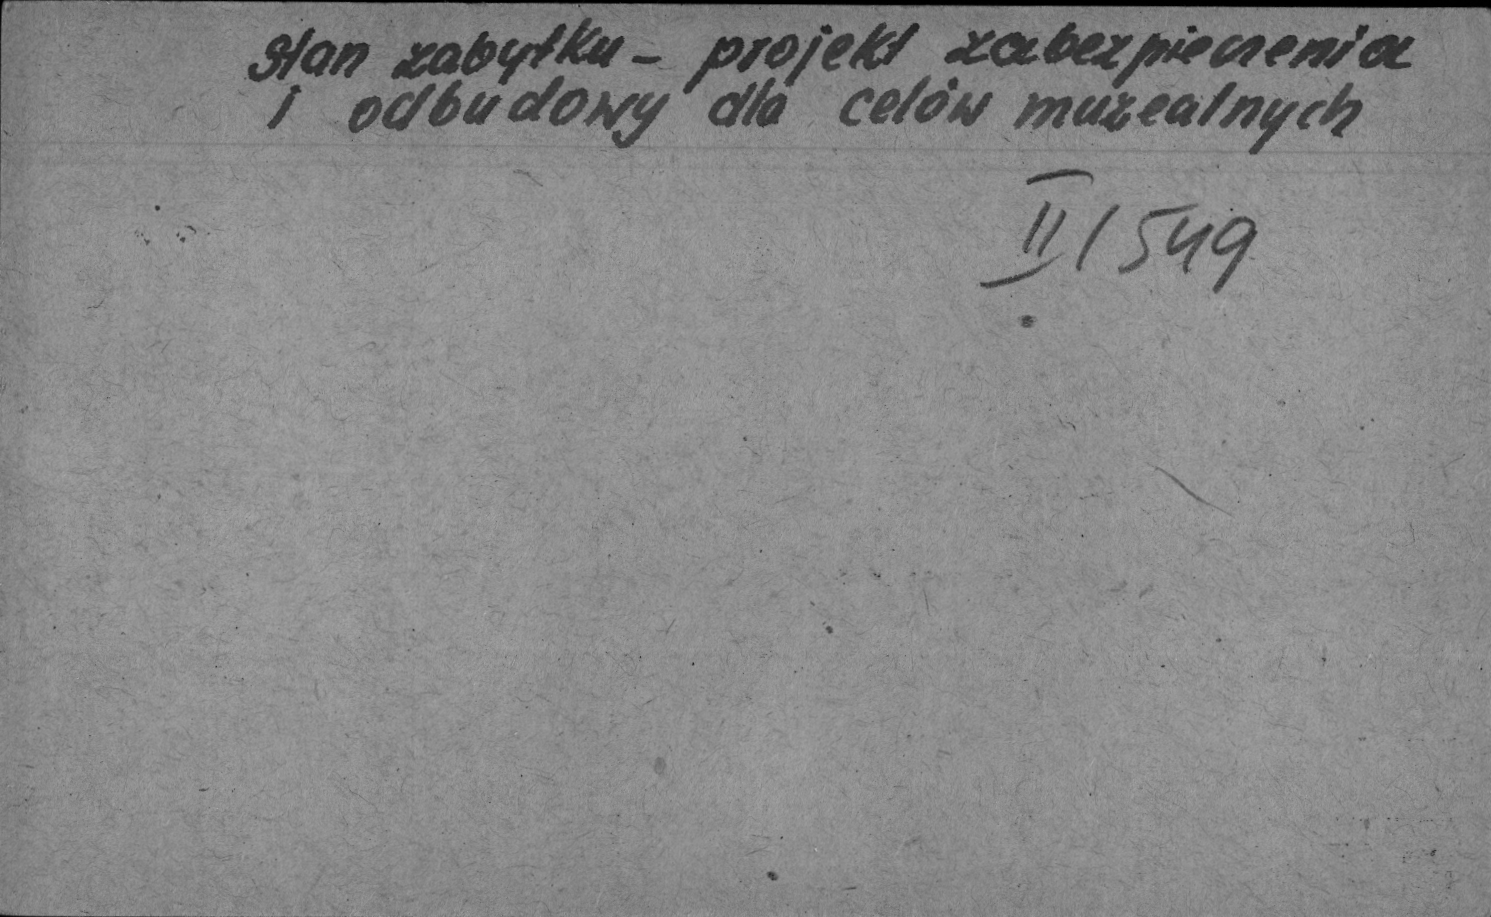 Stan zabytku - projekt zabezpieczenia
i odbudowy dla celów muzealnych
II/549